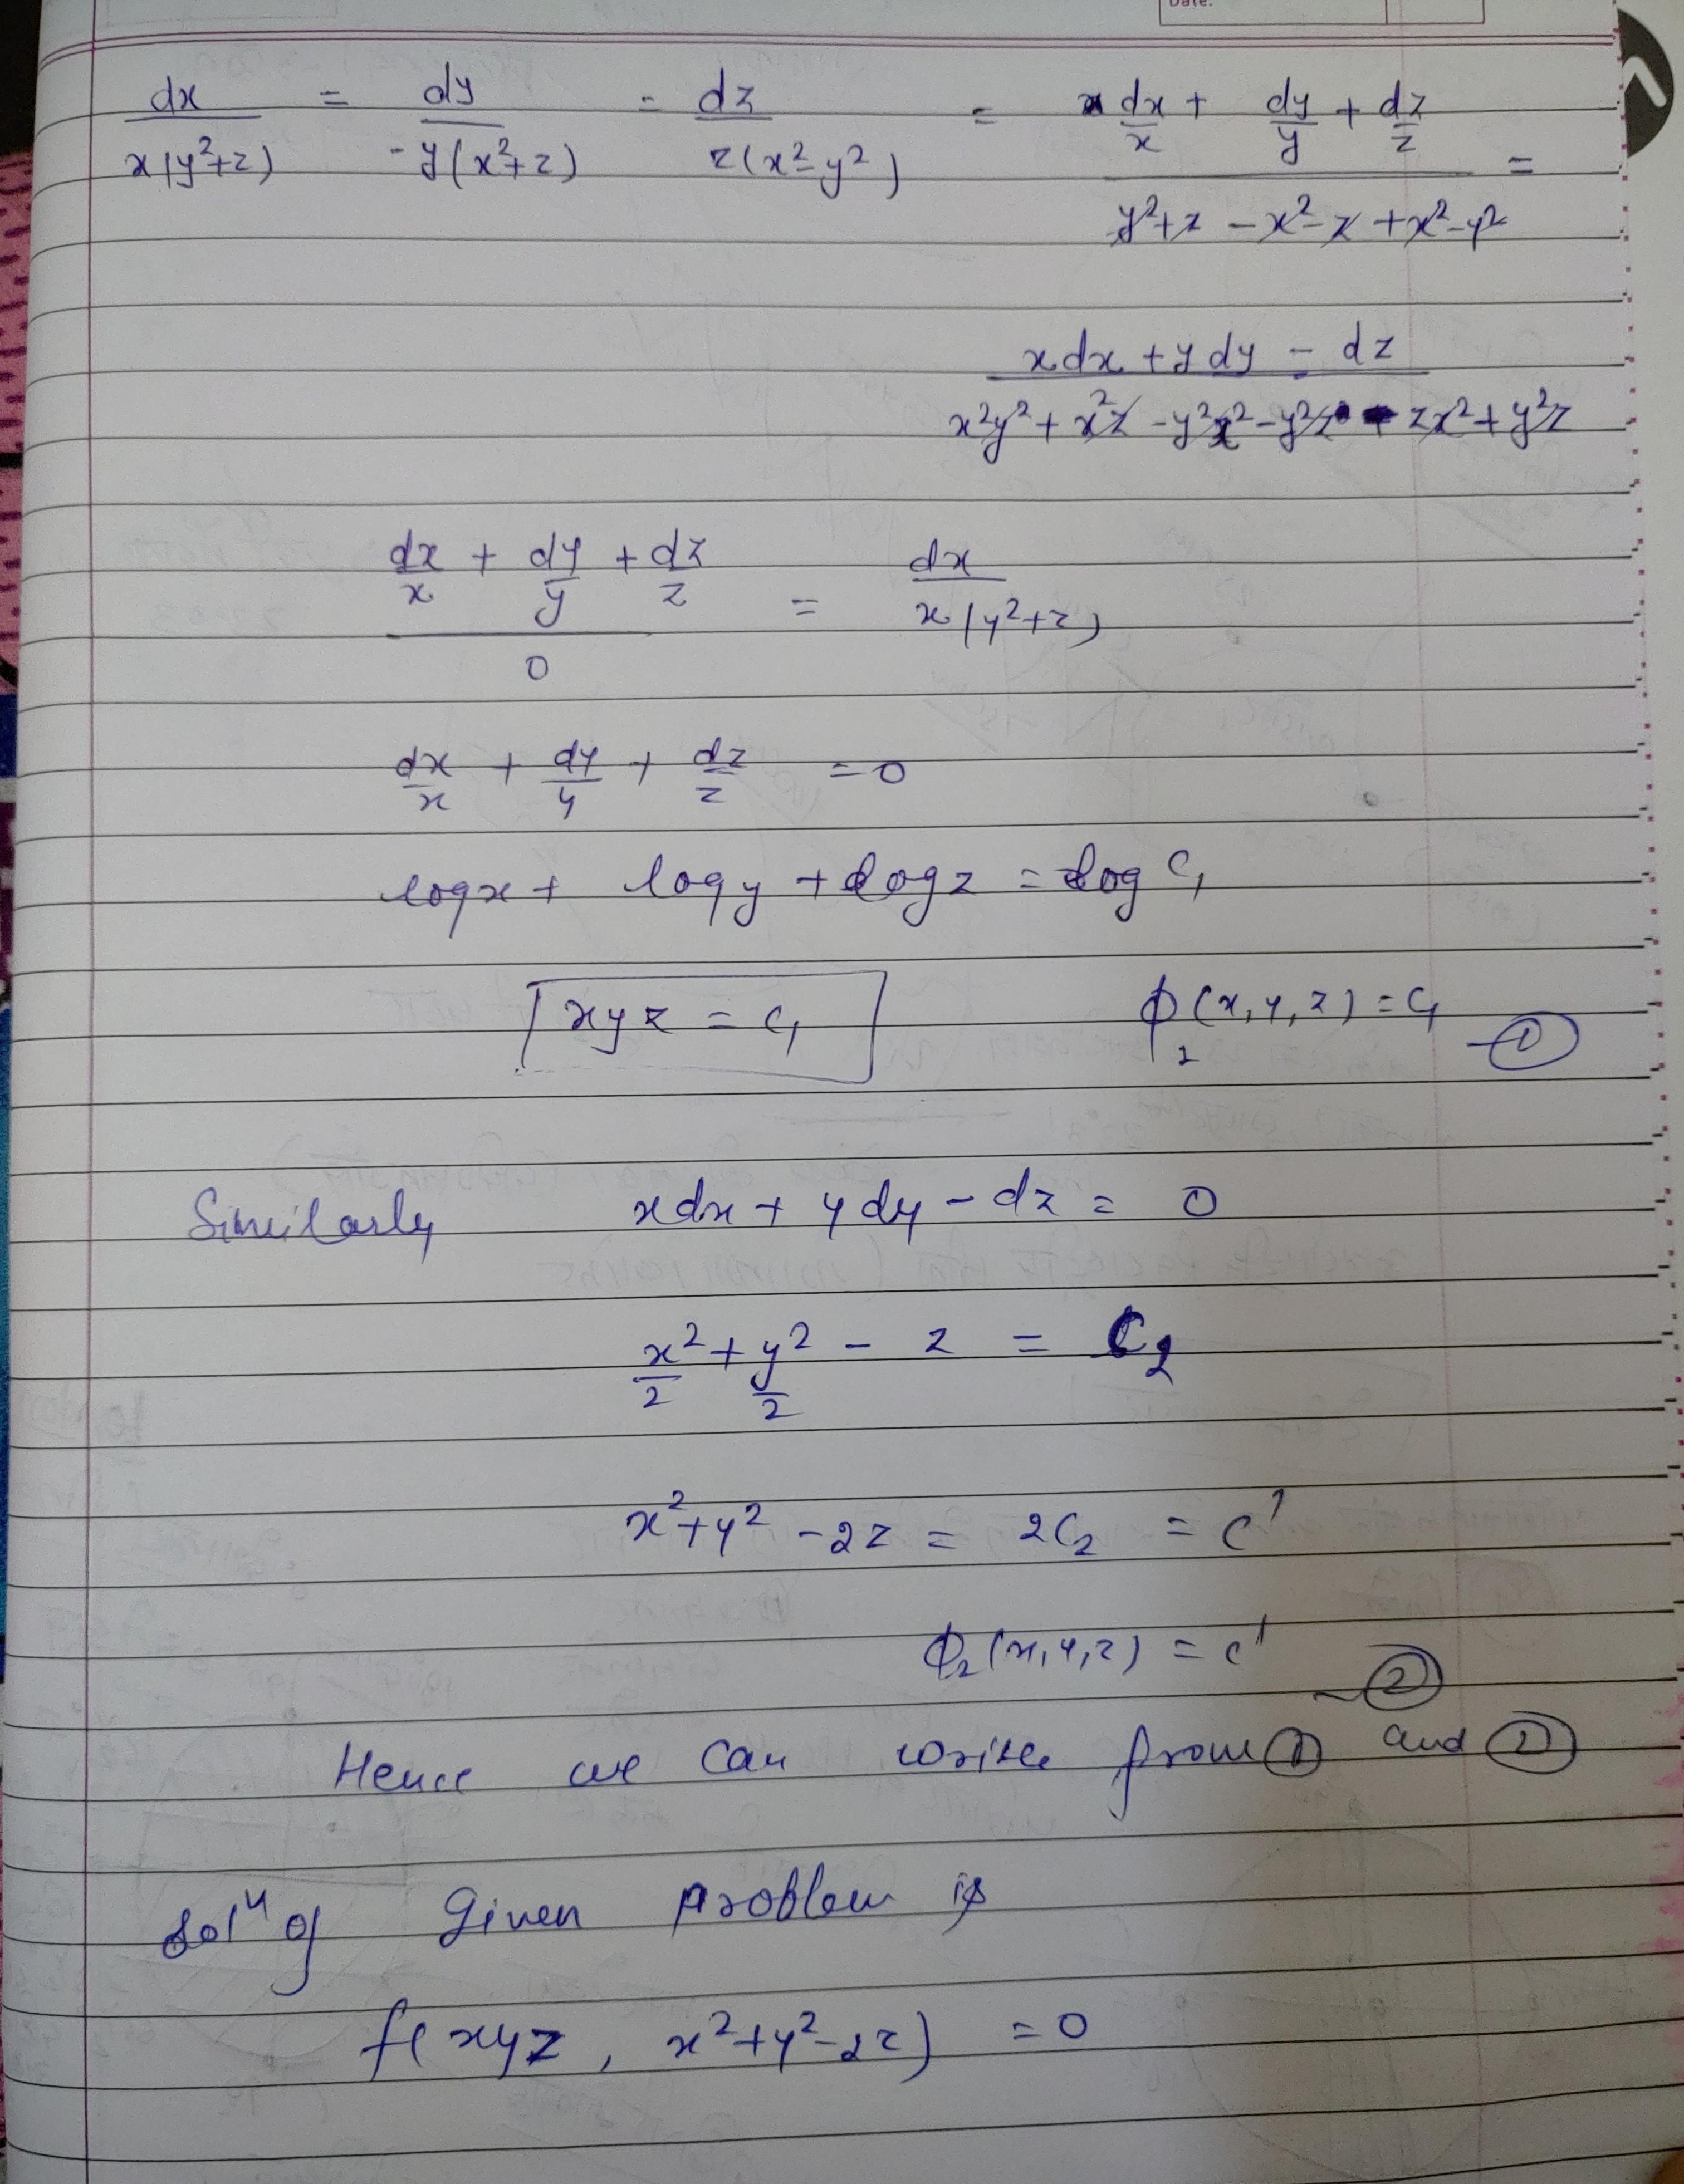 Date.
dx/x(y²+z) = dy/-y(x²+z) = dz/z(x²-y²) = dx/x + dy/y + dz/z / y²+z-x²-z+x²-y² =
xdx + ydy - dz / x²y² + x²z - y²x² - y²z - zx² + y²z
dx/x + dy/y + dz/z / 0 = dx/x(y²+z)
dx/x + dy/y + dz/z = 0
logx + logy + logz = log C₁
xyz = C₁ ϕ₁(x,y,z) = C₁ —①
Similarly xdx + ydy - dz = 0
x²/2 + y²/2 - z = C₂
x²+y²-2z = 2C₂ = C'
ϕ₂(x,y,z) = C' —②
Hence we can write from ① and ②
Solⁿ of given problem is
f(xyz, x²+y²-2z) = 0